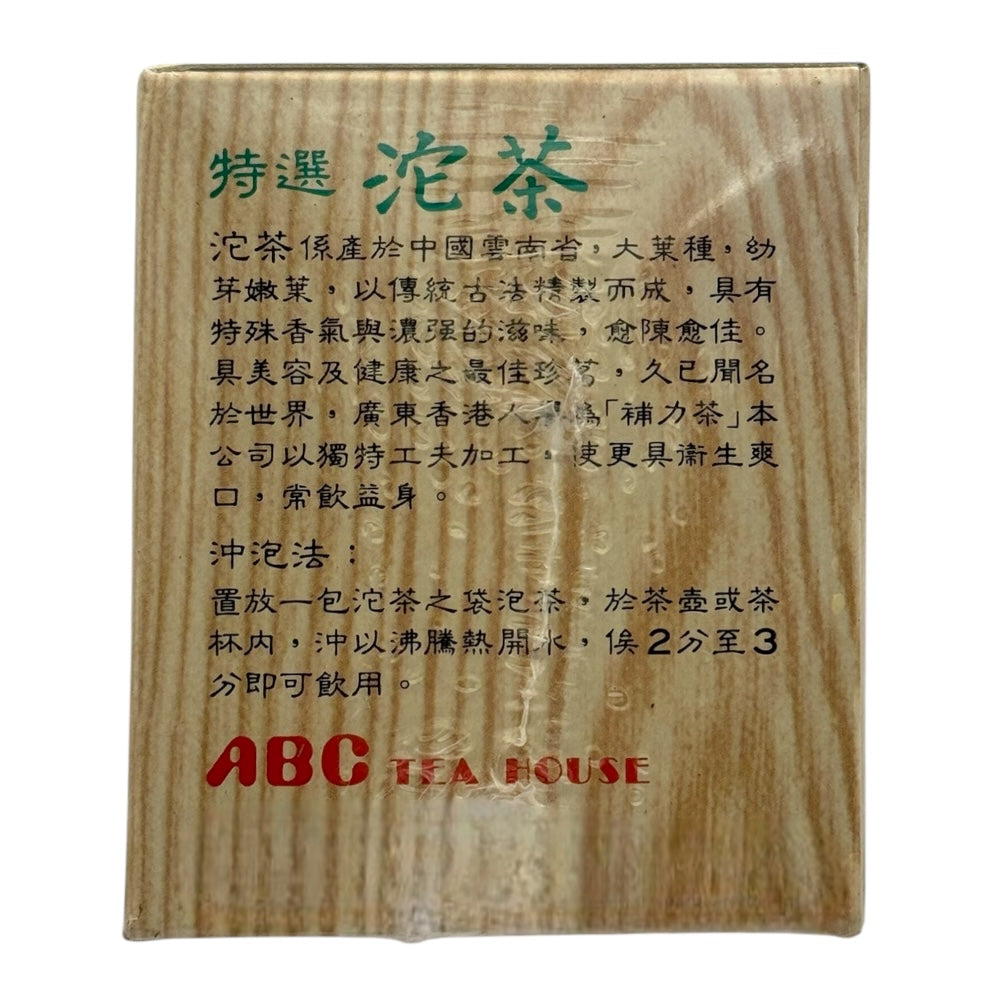 特選 沱茶
沱茶係產於中國雲南省，大葉種，幼
芽嫩葉，以傳統古法精製而成，具有
特殊香氣與濃强的滋味，愈陳愈佳。
具美容及健康之最佳珍茗，久已聞名
於世界，廣東香港人稱爲「補力茶」本
公司以獨特工夫加工，使更具衞生爽
口，常飲益身。
沖泡法：
置放一包沱茶之袋泡茶，於茶壺或茶
杯内，沖以沸騰熱開水，俟2分至3
分即可飲用。
ABC TEA HOUSE